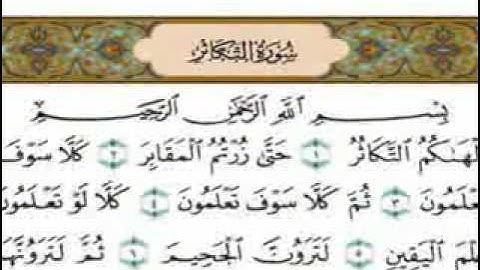 سُورَةُ التَّكَاثُرِ
بِسْمِ اللَّهِ الرَّحْمَٰنِ الرَّحِيمِ
لْهَىٰكُمُ التَّكَاثُرُ ١ حَتَّىٰ زُرْتُمُ الْمَقَابِرَ ٢ كَلَّا سَوْفَ
عْلَمُونَ ٣ ثُمَّ كَلَّا سَوْفَ تَعْلَمُونَ ٤ كَلَّا لَوْ تَعْلَمُونَ
لْمَ الْيَقِينِ ٥ لَتَرَوُنَّ الْجَحِيمَ ٦ ثُمَّ لَتَرَوُنَّهَا